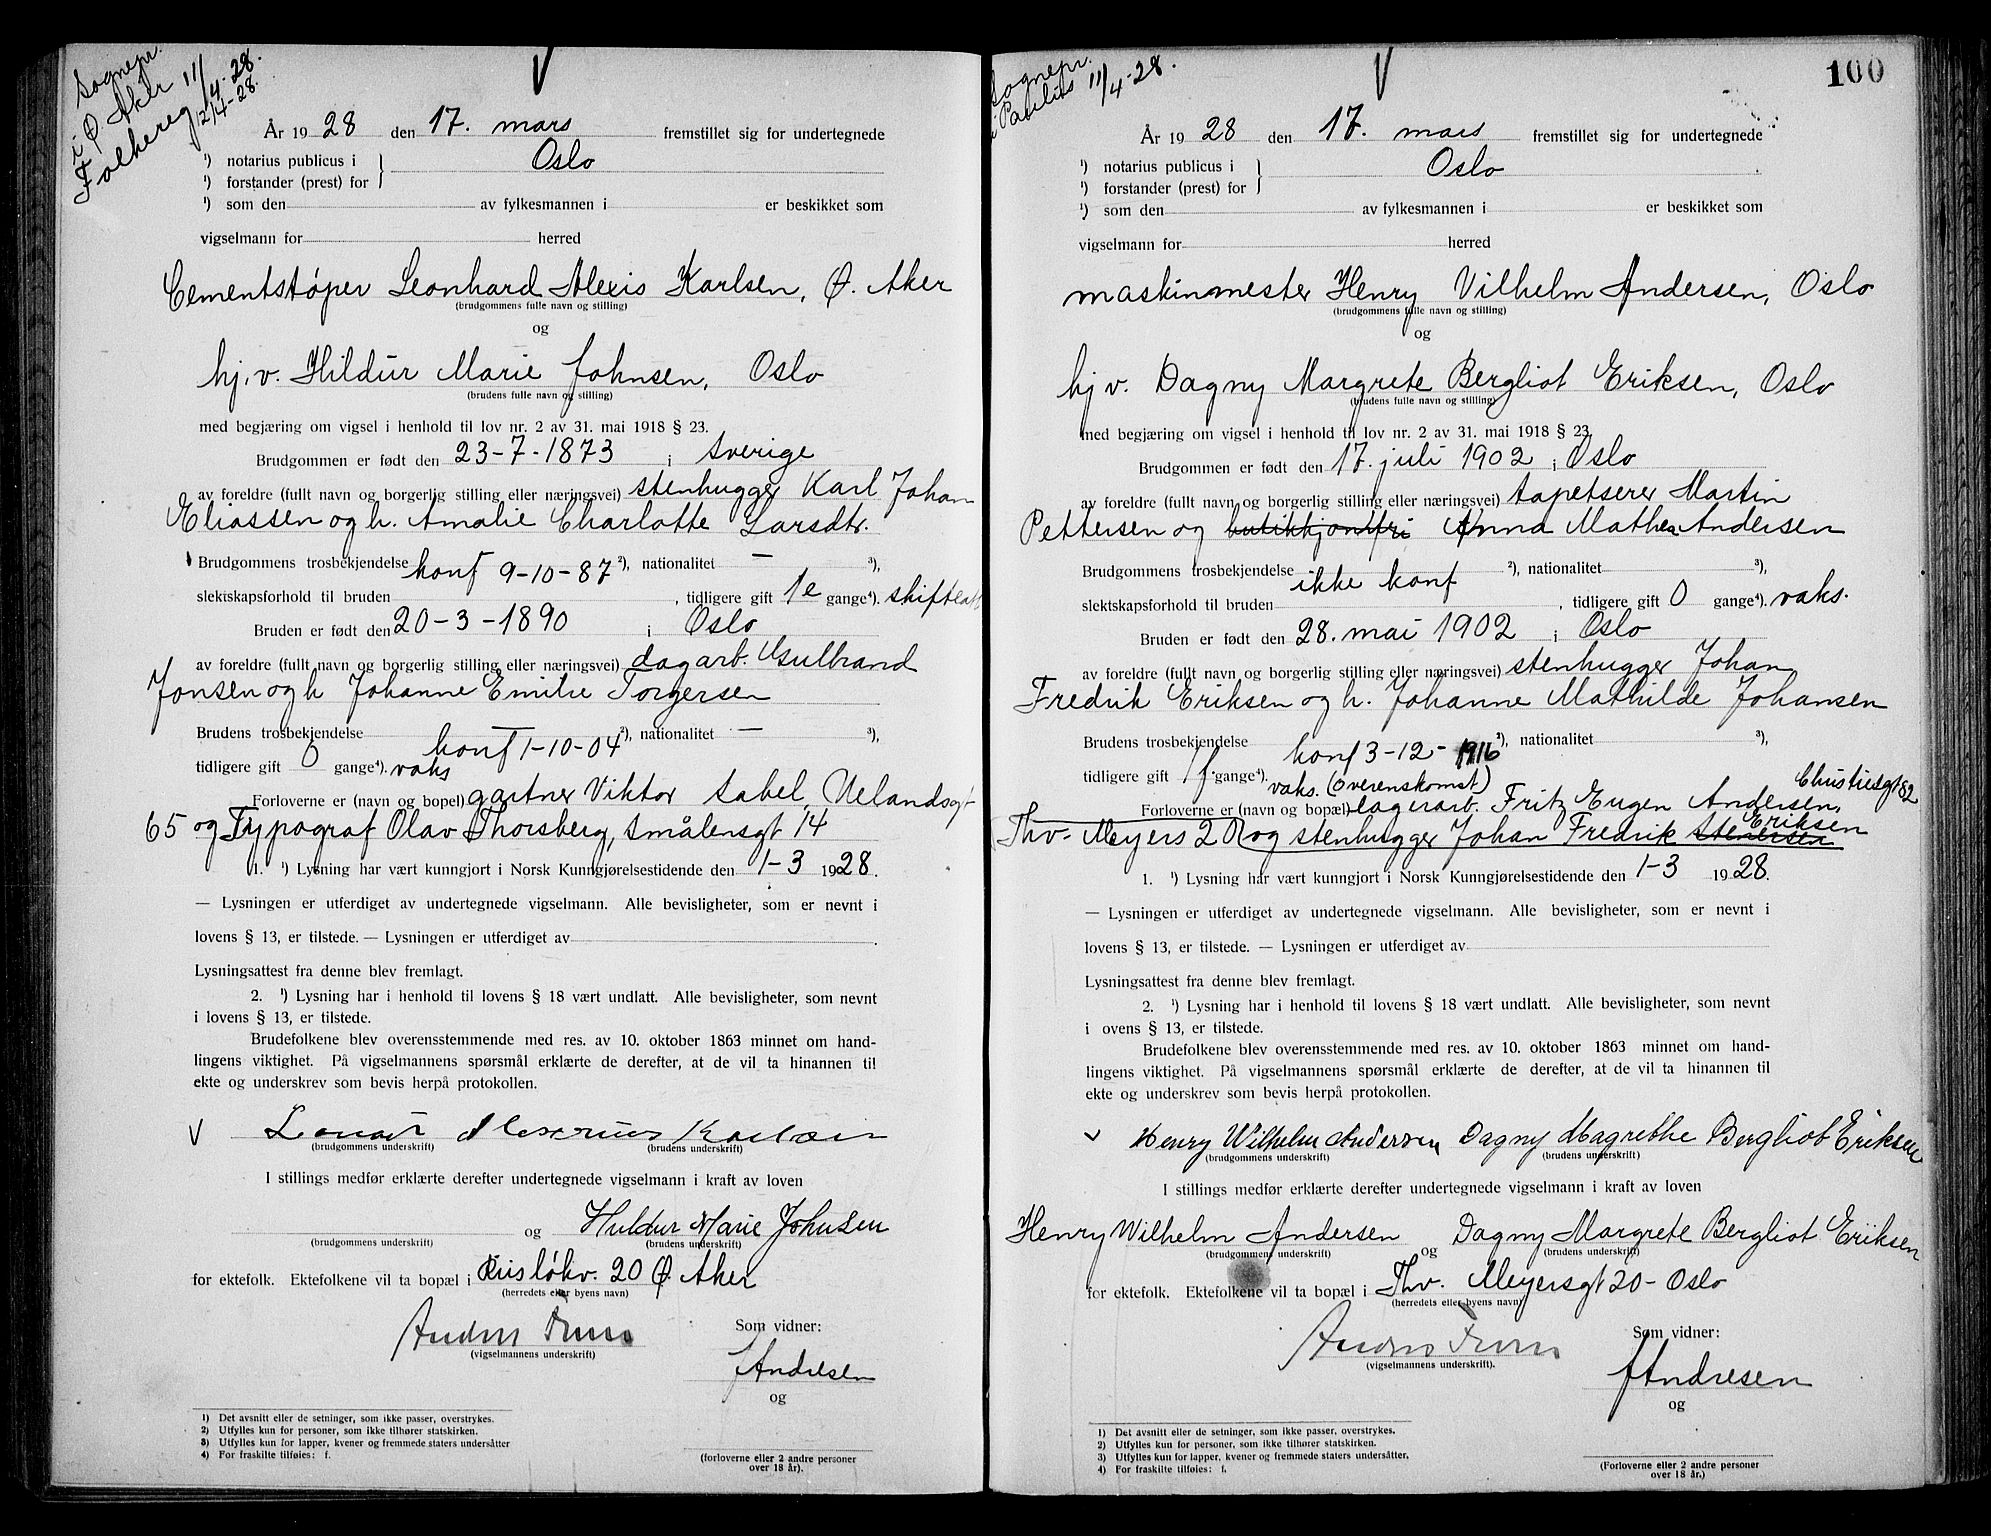 Sognepr.
i Ø. Aker 11/4-28.
Folkereg 12/4-28.
År 1928 den 17. mars fremstillet sig for undertegnede
¹) notarius publicus i } Oslo
¹) forstander (prest) for
¹) som den av fylkesmannen i er beskikket som
vigselmann for herred
Cementstøper Leonhard Alexis Karlsen, Ø. Aker
(brudgommens fulle navn og stilling)
og
hj.v. Hildur Marie Johnsen, Oslo
(brudens fulle navn og stilling)
med begjæring om vigsel i henhold til lov nr. 2 av 31. mai 1918 § 23.
Brudgommen er født den 23-7-1873 i Sverige
av foreldre (fullt navn og borgerlig stilling eller næringsvei) stenhugger Karl Johan
Eliassen og h. Amalie Charlotte Larsdtr.
Brudgommens trosbekjendelse konf 9-10-87 ²), nationalitet — ³),
slektskapsforhold til bruden , tidligere gift 1e gange⁴). skifteatt
Bruden er født den 20-3-1890 i Oslo
av foreldre (fullt navn og borgerlig stilling eller næringsvei) dagarb. Gulbrand
Jonsen og h Johanne Emilie Torgersen
Brudens trosbekjendelse konf 1-10-04 ²), nationalitet — ³),
tidligere gift 0 gange⁴). vaks
Forloverne er (navn og bopel) gartner Viktor Sabel, Uelandsgt
65 og Typograf Olav Thorsberg, Smålensgt 14
1. ¹) Lysning har vært kunngjort i Norsk Kunngjørelsestidende den 1-3 1928.
— Lysningen er utferdiget av undertegnede vigselmann. Alle bevisligheter, som er nevnt i
lovens § 13, er tilstede. — Lysningen er utferdiget av .
Lysningsattest fra denne blev fremlagt.
2. ¹) Lysning har i henhold til lovens § 18 vært undlatt. Alle bevisligheter, som nevnt
i lovens § 13, er tilstede.
Brudefolkene blev overensstemmende med res. av 10. oktober 1863 minnet om hand-
lingens viktighet. På vigselmannens spørsmål erklærte de derefter, at de vil ta hinannen til
ekte og underskrev som bevis herpå protokollen.
(brudgommens underskrift) (brudens underskrift)
I stillings medfør erklærte derefter undertegnede vigselmann i kraft av loven
og Huldur Marie Johnsen
(brudgommens underskrift) (brudens underskrift)
for ektefolk. Ektefolkene vil ta bopæl i Risløkv. 20 Ø. Aker
(herredets eller byens navn)
Som vidner:
(vigselmannens underskrift)
J Andresen
og
1) Det avsnitt eller de setninger, som ikke passer, overstrykes.
2) Utfylles kun for personer, som ikke tilhører statskirken.
3) Utfylles kun for lapper, kvener og fremmede staters undersåtter
4) For fraskilte tilføies: f.
(forloverne eller 2 andre personer
over 18 år).
100
Sognepr.
i Paulus 11/4-28.
År 1928 den 17. mars fremstillet sig for undertegnede
¹) notarius publicus i } Oslo
¹) forstander (prest) for
¹) som den av fylkesmannen i er beskikket som
vigselmann for herred
maskinmester Henry Vilhelm Andersen, Oslo
(brudgommens fulle navn og stilling)
og
hj v. Dagny Margrete Bergliot Eriksen, Oslo
(brudens fulle navn og stilling)
med begjæring om vigsel i henhold til lov nr. 2 av 31. mai 1918 § 23.
Brudgommen er født den 17. juli 1902 i Oslo
av foreldre (fullt navn og borgerlig stilling eller næringsvei) tapetserer Martin
Pettersen og butikkjomfru Anna Mathea Andersen
Brudgommens trosbekjendelse ikke konf ²), nationalitet ³),
slektskapsforhold til bruden , tidligere gift 0 gange⁴). vaks.
Bruden er født den 28. mai 1902 i Oslo
av foreldre (fullt navn og borgerlig stilling eller næringsvei) stenhugger Johan
Fredrik Eriksen og h. Johanne Mathilde Johansen
Brudens trosbekjendelse konf 3-12-1916 ²), nationalitet ³),
tidligere gift 1 f. gange⁴). vaks. (overenskomst)
Christiesgt 82
Forloverne er (navn og bopæl) lagerarb. Fritz Eugen Andersen,
Eriksen
Thv. Meyers 20 og stenhugger Johan Fredrik Stenersen
1. ¹) Lysning har vært kunngjort i Norsk Kunngjørelsestidende den 1-3 1928.
— Lysningen er utferdiget av undertegnede vigselmann. Alle bevisligheter, som er nevnt i
lovens § 13, er tilstede. — Lysningen er utferdiget av
Lysningsattest fra denne blev fremlagt.
2. ¹) Lysning har i henhold til lovens § 18 vært undlatt. Alle bevisligheter, som nevnt
i ovens § 13, er tilstede.
Brudefolkene blev overensstemmende med res. av 10. oktober 1863 minnet om hand-
lingens viktighet. På vigselmannens spørsmål erklærte de derefter, at de vil ta hinannen til
ekte og underskrev som bevis herpå protokollen.
Henry Wilhelm Andersen Dagny Magrethe Bergliot Eriksen
(brudgommens underskrift) (brudens underskrift)
I stillings medfør erklærte derefter undertegnede vigselmann i kraft av loven
Henry Wilhelm Andersen og Dagny Margrete Bergliot Eriksen
(brudgommens underskrift) (brudens underskrift)
for ektefolk. Ektefolkene vil ta bopæl i Thv. Meyersgt 20 - Oslo
(herredets eller byens navn)
Som vidner:
(vigselmannens underskrift).
J Andresen
og
1) Det avsnitt eller de setninger, som ikke passer, overstrykes.
2) Utfylles kun for personer, som ikke tilhører statskirken.
3) Utfylles kun for lapper, kvener og fremmede staters undersåtter.
4) For fraskilte tilføies: f.
(Forloverne eller 2 andre personer
over 18 år.)